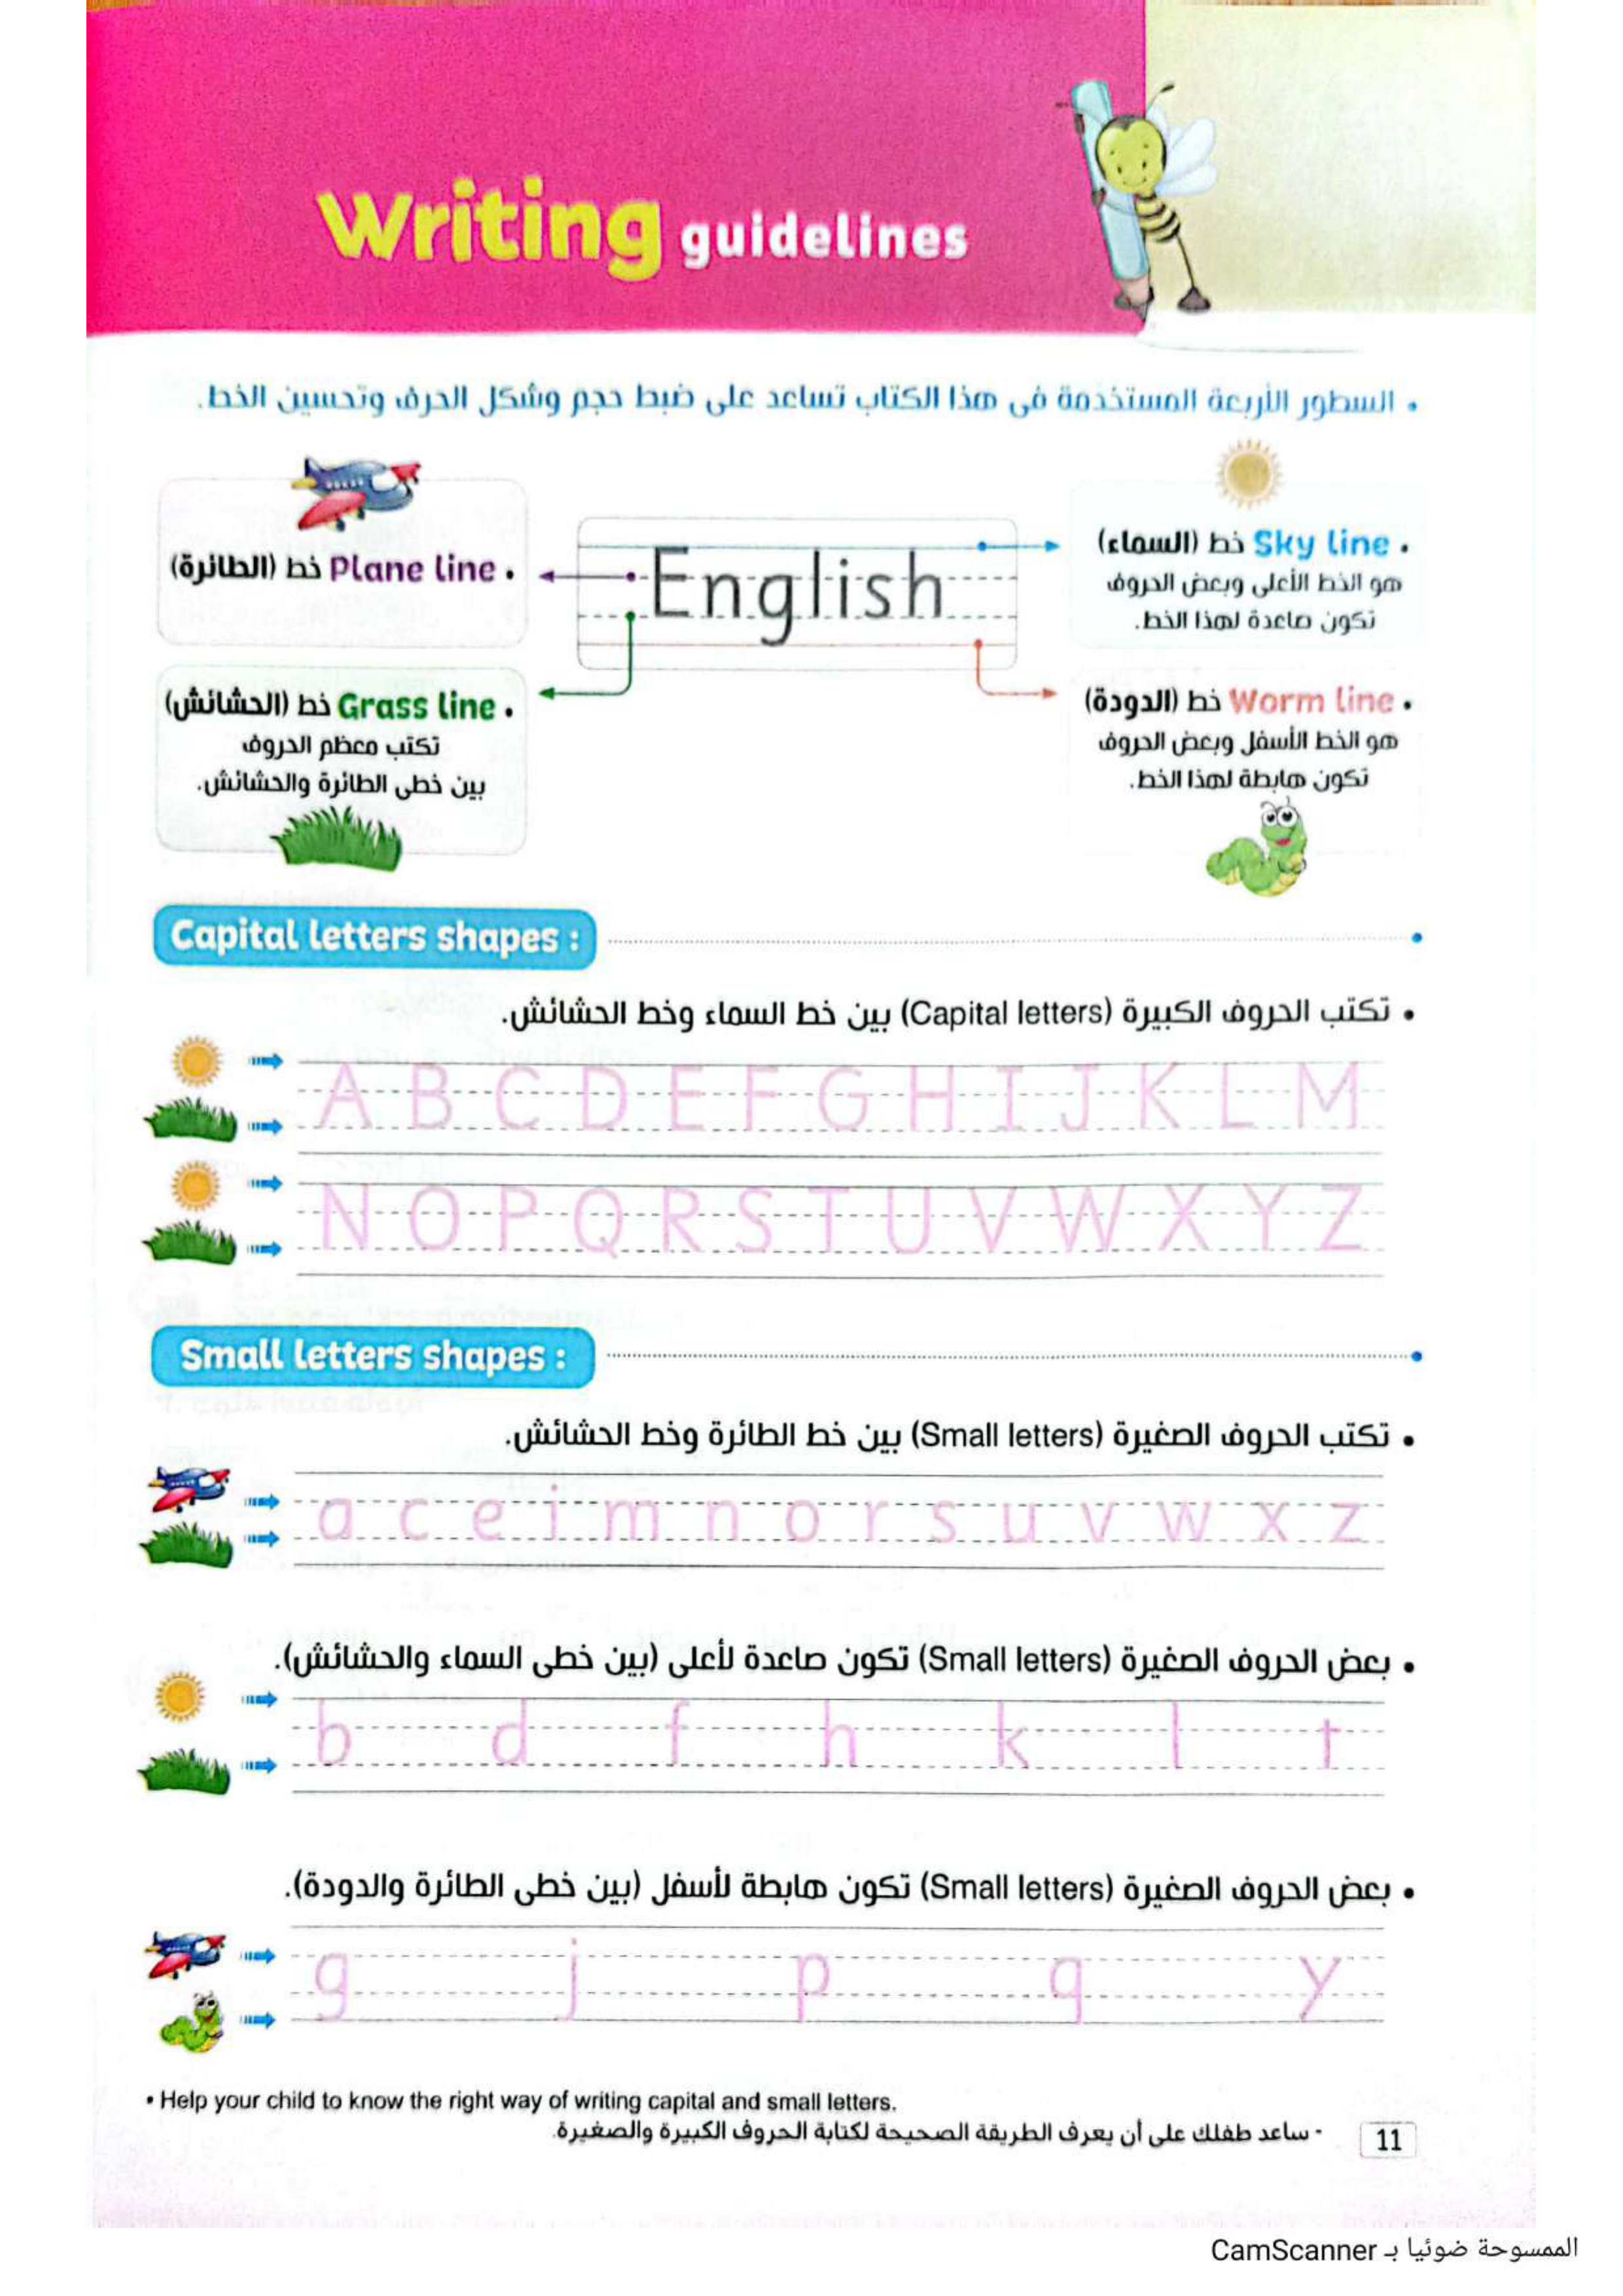 Writing guidelines
• السطور الأربعة المستخدمة فى هذا الكتاب تساعد على ضبط حجم وشكل الحرف وتحسين الخط.
• Sky line خط (السماء)
هو الخط الأعلى وبعض الحروف
تكون صاعدة لهذا الخط.
• Plane line خط (الطائرة)
English
• Worm line خط (الدودة)
هو الخط الأسفل وبعض الحروف
تكون هابطة لهذا الخط.
• Grass line خط (الحشائش)
تكتب معظم الحروف
بين خطى الطائرة والحشائش.
Capital letters shapes :
• تكتب الحروف الكبيرة (Capital letters) بين خط السماء وخط الحشائش.
A B C D E F G H I J K L M
N O P Q R S T U V W X Y Z
Small letters shapes :
• تكتب الحروف الصغيرة (Small letters) بين خط الطائرة وخط الحشائش.
a c e i m n o r s u v w x z
• بعض الحروف الصغيرة (Small letters) تكون صاعدة لأعلى (بين خطى السماء والحشائش).
b d f h k l t
• بعض الحروف الصغيرة (Small letters) تكون هابطة لأسفل (بين خطى الطائرة والدودة).
g j p q y
• Help your child to know the right way of writing capital and small letters.
- ساعد طفلك على أن يعرف الطريقة الصحيحة لكتابة الحروف الكبيرة والصغيرة.
11
الممسوحة ضوئيا بـ CamScanner